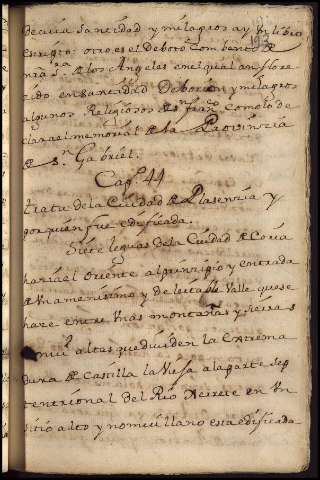 de cuia Santidad y milagros ay Un libro
escrito: otro es el Deboto Combento de
nra Sra de los Angeles en el qual an flore
cido en Santidad Deboçion y milagros
algunos Religiosos de Sn franco como lo de
clara el memorial de la Provinçia
de Sn Gabriel.
Capo 44
trata de la Ciudad de Plasençia y
por quien fue edificada.
Siete leguas de la Ciudad de Coria
haçia el Oriente al prinzipio y entrada
de Un amenissimo y deleitable Valle que se
haze entre Unas montañas y sierras
mui altas que dividen la Extrema
dura de Castilla la Vieja a la parte sep
tentrional del Rio Xerete en Un
sitio alto y no mui llano esta edificada